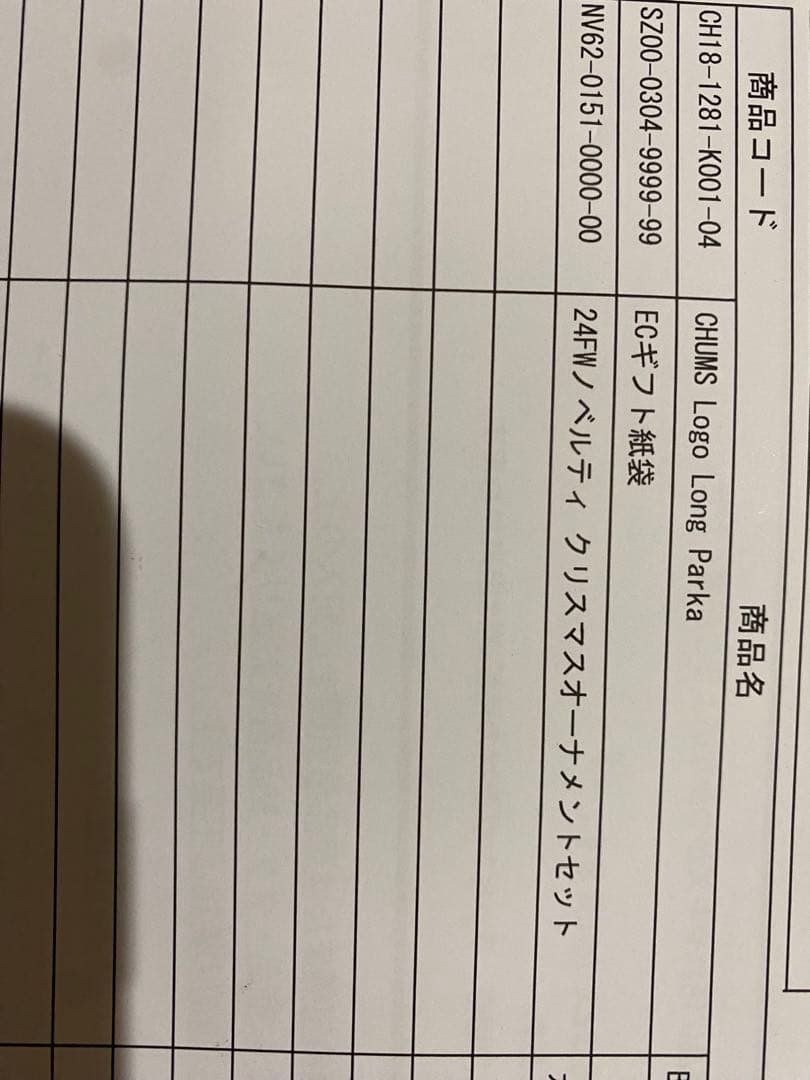 商品コード 商品名
CH18-1281-K001-04 CHUMS Logo Long Parka
SZ00-0304-9999-99 ECギフト紙袋
NV62-0151-0000-00 24FWノベルティ クリスマスオーナメントセット